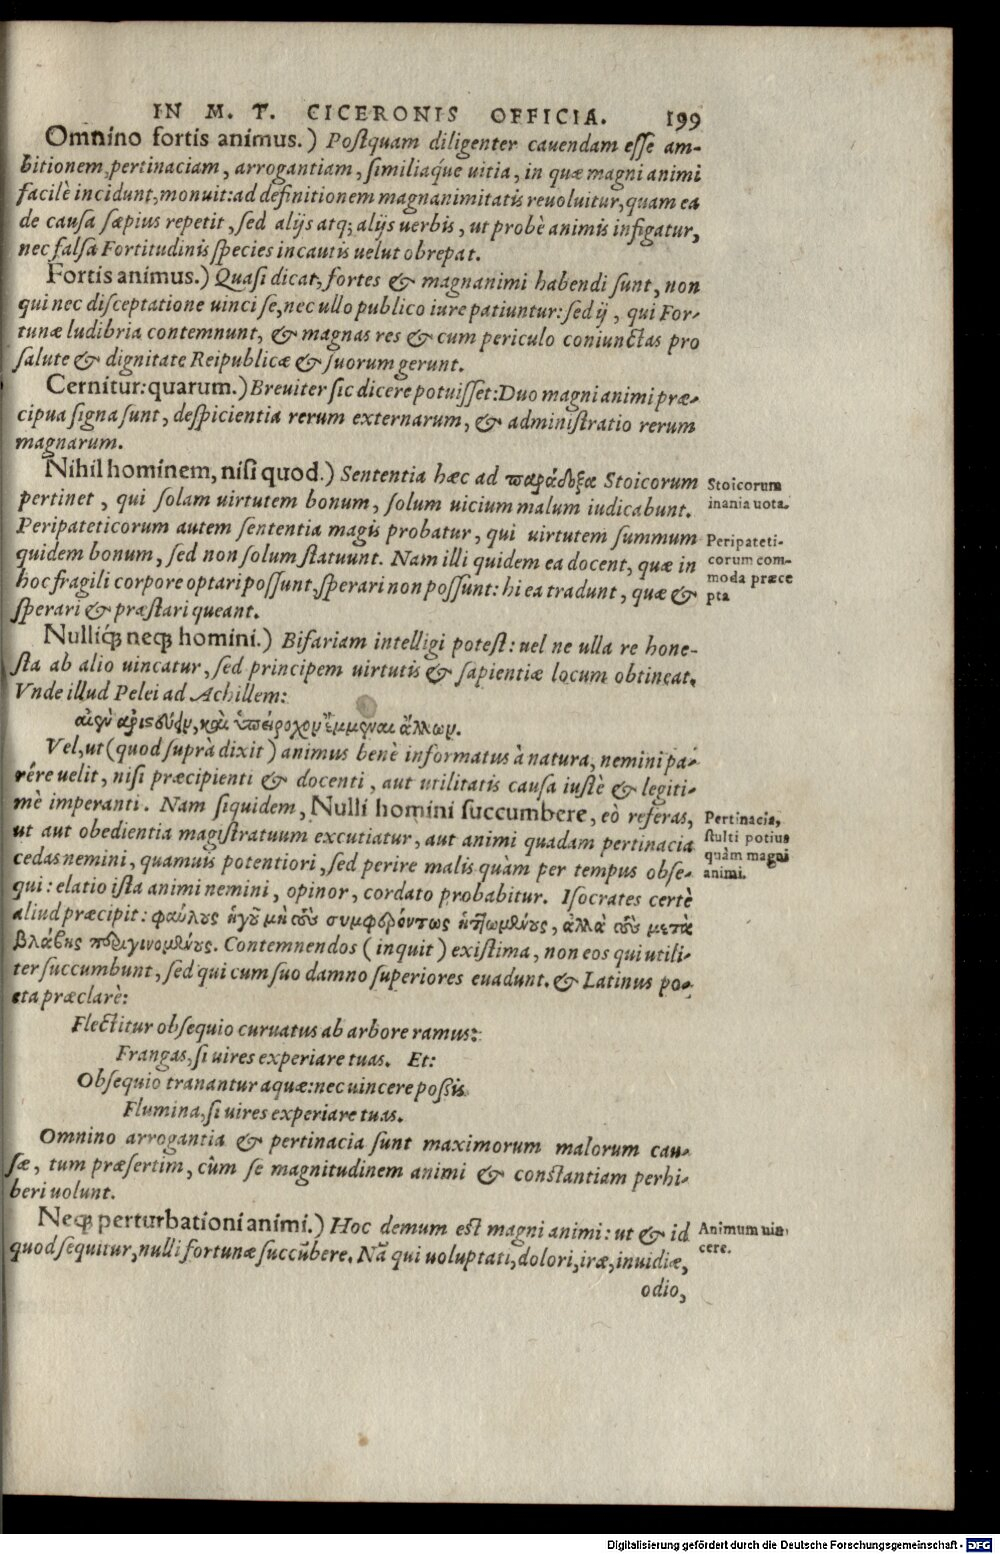 IN M. T. CICERONIS OFFICIA. 199
Omnino fortis animus.) Poſtquam diligenter cauendam eſſe am-
bitionem, pertinaciam, arrogantiam, ſimiliaq́ue uitia, in quæ magni animi
facilè incidunt, monuit: ad definitionem magnanimitatis reuoluitur, quam ea
de cauſa ſæpius repetit, ſed alijs atq; alijs uerbis, ut probè animis infigatur,
nec falſa Fortitudinis ſpecies incautis uelut obrepat.
Fortis animus.) Quaſi dicat, fortes & magnanimi habendi ſunt, non
qui nec diſceptatione uinci ſe, nec ullo publico iure patiuntur: ſed ij, qui For-
tunæ ludibria contemnunt, & magnas res & cum periculo coniunctas pro
ſalute & dignitate Reipublicæ & ſuorum gerunt.
Cernitur: quarum.) Breuiter ſic dicere potuiſſet: Duo magni animi præ-
cipua ſigna ſunt, deſpicientia rerum externarum, & adminiſtratio rerum
magnarum.
Nihil hominem, niſi quod.) Sententia hæc ad παράδοξα Stoicorum
pertinet, qui ſolam uirtutem bonum, ſolum uicium malum iudicabunt.
Peripateticorum autem ſententia magis probatur, qui uirtutem ſummum
quidem bonum, ſed non ſolum ſtatuunt. Nam illi quidem ea docent, quæ in
hoc fragili corpore optari poſſunt, ſperari non poſſunt: hi ea tradunt, quæ &
ſperari & præſtari queant.
Stoicorum
inania uota.
Peripateti-
corum com-
moda præce
pta
Nulliq́; neq; homini.) Bifariam intelligi poteſt: uel ne ulla re hone-
ſta ab alio uincatur, ſed principem uirtutis & ſapientiæ locum obtineat.
Vnde illud Pelei ad Achillem:
αἰὲν ἀριστεύειν, καὶ ὑπείροχον ἔμμεναι ἄλλων.
Vel, ut (quod ſuprà dixit) animus benè informatus à natura, nemini pa-
rêre uelit, niſi præcipienti & docenti, aut utilitatis cauſa iuſtè & legiti-
mè imperanti. Nam ſiquidem, Nulli homini ſuccumbere, eò referas,
ut aut obedientia magiſtratuum excutiatur, aut animi quadam pertinacia
cedas nemini, quamuis potentiori, ſed perire malis quàm per tempus obſe-
qui: elatio iſta animi nemini, opinor, cordato probabitur. Iſocrates certè
aliud præcipit: φαύλους ἡγοῦ μὴ τοὺς συμφερόντως ἡττωμένους, ἀλλὰ τοὺς μετὰ
βλάβης περιγινομένους. Contemnendos (inquit) exiſtima, non eos qui utili-
ter ſuccumbunt, ſed qui cum ſuo damno ſuperiores euadunt. & Latinus po-
eta præclarè:
Pertinacia,
ſtulti potius
quàm magni
animi.
Flectitur obſequio curuatus ab arbore ramus:
Frangas, ſi uires experiare tuas. Et:
Obſequio tranantur aquæ: nec uincere poſsis
Flumina, ſi uires experiare tuas.
Omnino arrogantia & pertinacia ſunt maximorum malorum cau-
ſæ, tum præſertim, cùm ſe magnitudinem animi & conſtantiam perhi-
beri uolunt.
Neq; perturbationi animi.) Hoc demum eſt magni animi: ut & id
quod ſequitur, nulli fortunæ ſuccũbere. Nã qui uoluptati, dolori, iræ, inuidiæ,
odio,
Animum uin-
cere.
Digitalisierung gefördert durch die Deutsche Forschungsgemeinschaft - DFG